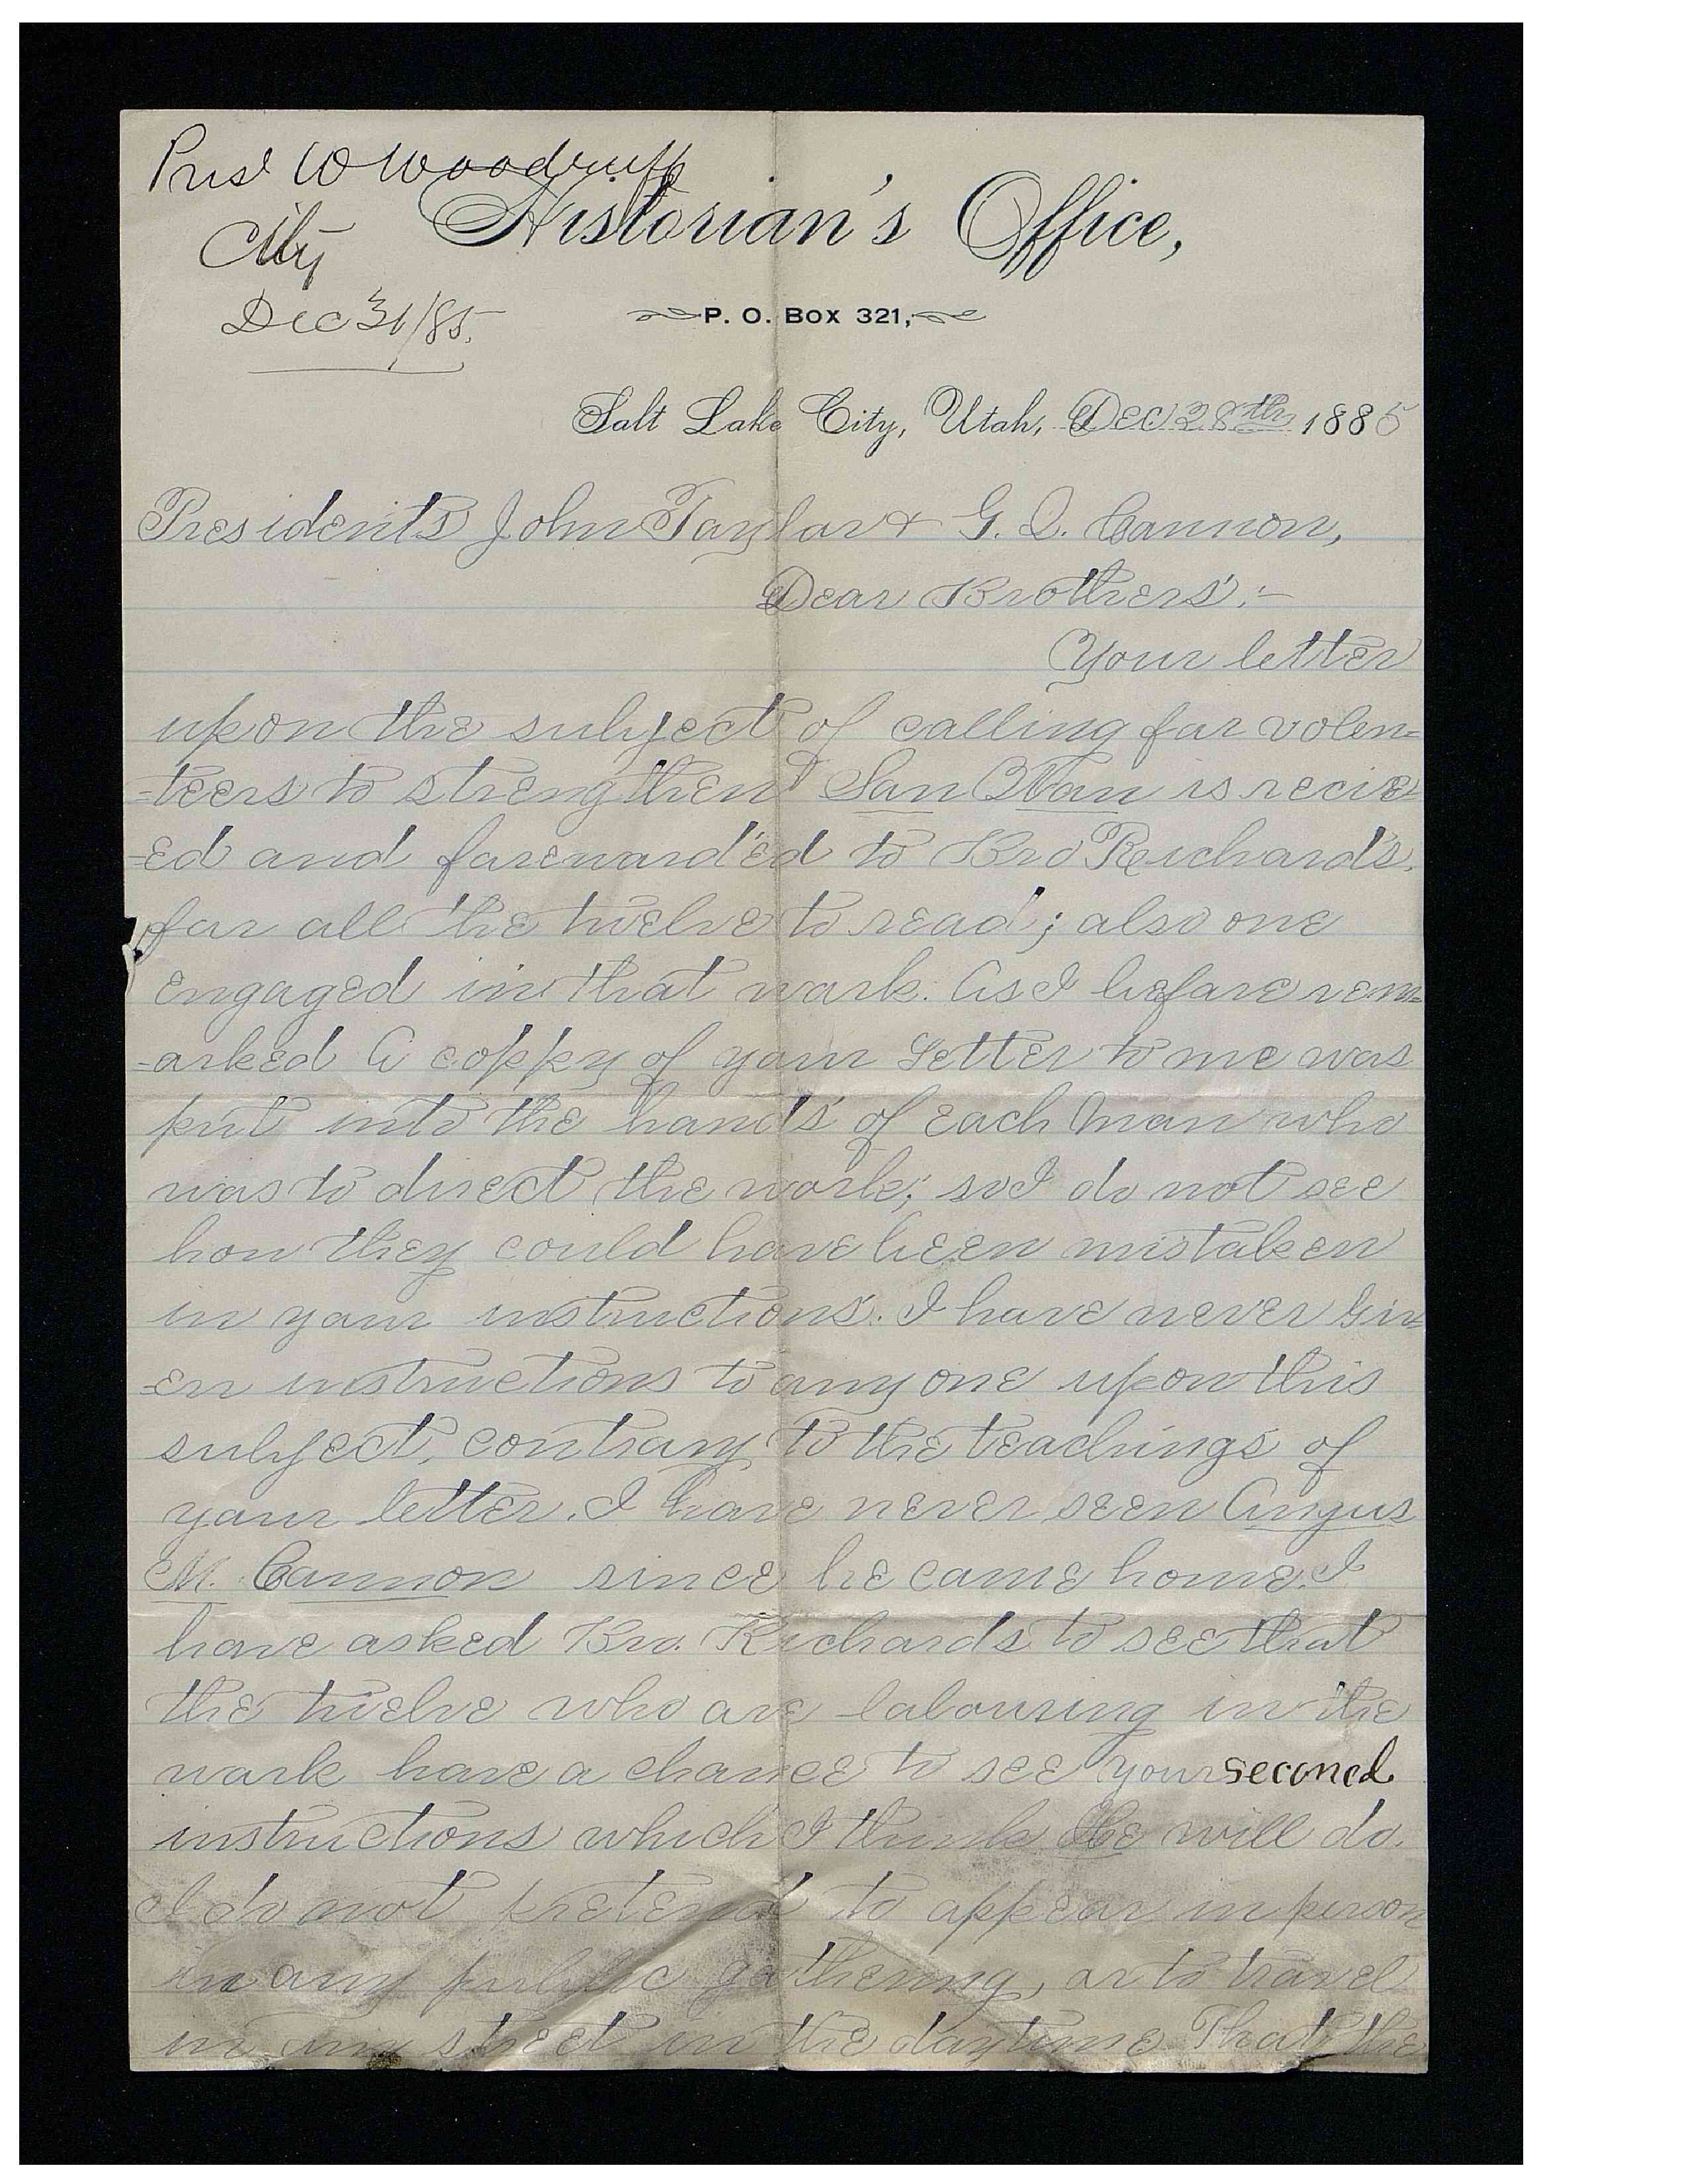 Prest W Woodruff
City
Dec 31/85.
Historian's Office,
P. O. Box 321,
Salt Lake City, Utah, Dec 28th 1885
Presidents John Taylor & G. Q. Cannon,
Dear Brothers:-
Your letter
upon the subject of calling for volen=
=teers to strengthen San Wan is reciev=
=ed and forewarded to Bro Richards.
for all the twelve to read; also one
engaged in that work. As I before rem=
=arked A coppy of your Letter to me was
put into the hands of each man who
was to direct the work; so I do not see
how they could have been mistaken
in your instructions. I have never giv=
=en instructions to any one upon this
subject, contrary to the teachings of
your letter. I have never seen Angus
M. Cannon since he came home. I
have asked Bro. Richards to see that
the twelve who are labouring in the
work have a chance to see your seconed
instructions which I think He will do.
I do not pretend to appear in person
in any public gathering, or to travel
in any street in the daytime. That the